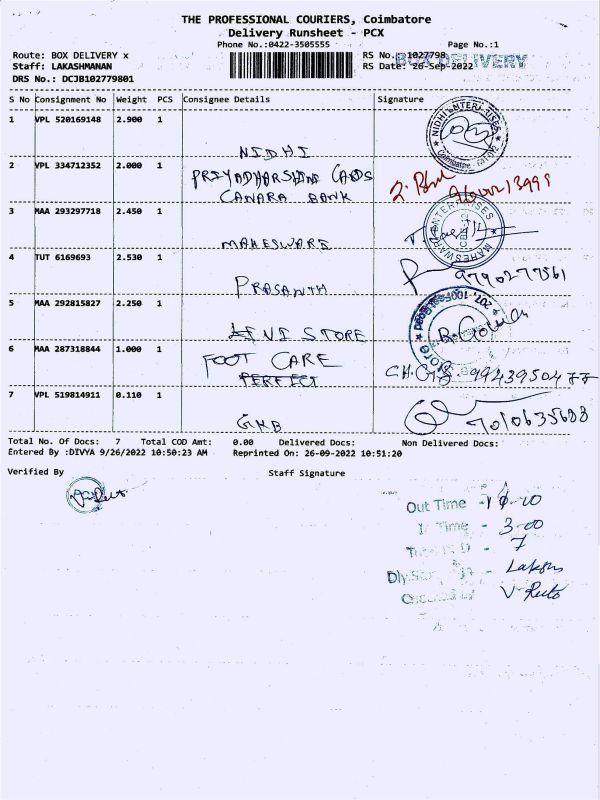 THE PROFESSIONAL COURIERS, Coimbatore
Delivery Runsheet - PCX
Phone No.:0422-3505555 Page No.:1
Route: BOX DELIVERY x RS No.: 1027798 BOX DELIVERY
Staff: LAKASHMANAN RS Date: 26-Sep-2022
DRS No.: DCJB102779801
S No Consignment No Weight PCS Consignee Details Signature
1 VPL 520169148 2.900 1
NIDHI
NIDHI ENTERPRISES
Coimbatore
2 VPL 334712352 2.000 1
PRIYADHARSHINI CARDS
CANARA BANK
3 MAA 293297718 2.450 1
MAHESWARI
MAHESWARI ENTERPRISES
4 TUT 6169693 2.530 1
PRASANTH
9790277561
5 MAA 292815827 2.250 1
STORE
6 MAA 287318844 1.000 1
FOOT CARE
PERFECT
7 VPL 519814911 0.110 1
GKB
7010635688
Total No. Of Docs: 7 Total COD Amt: 0.00 Delivered Docs: Non Delivered Docs:
Entered By :DIVYA 9/26/2022 10:50:23 AM Reprinted On: 26-09-2022 10:51:20
Verified By Staff Signature
Out Time
In Time - 3-00
- 7